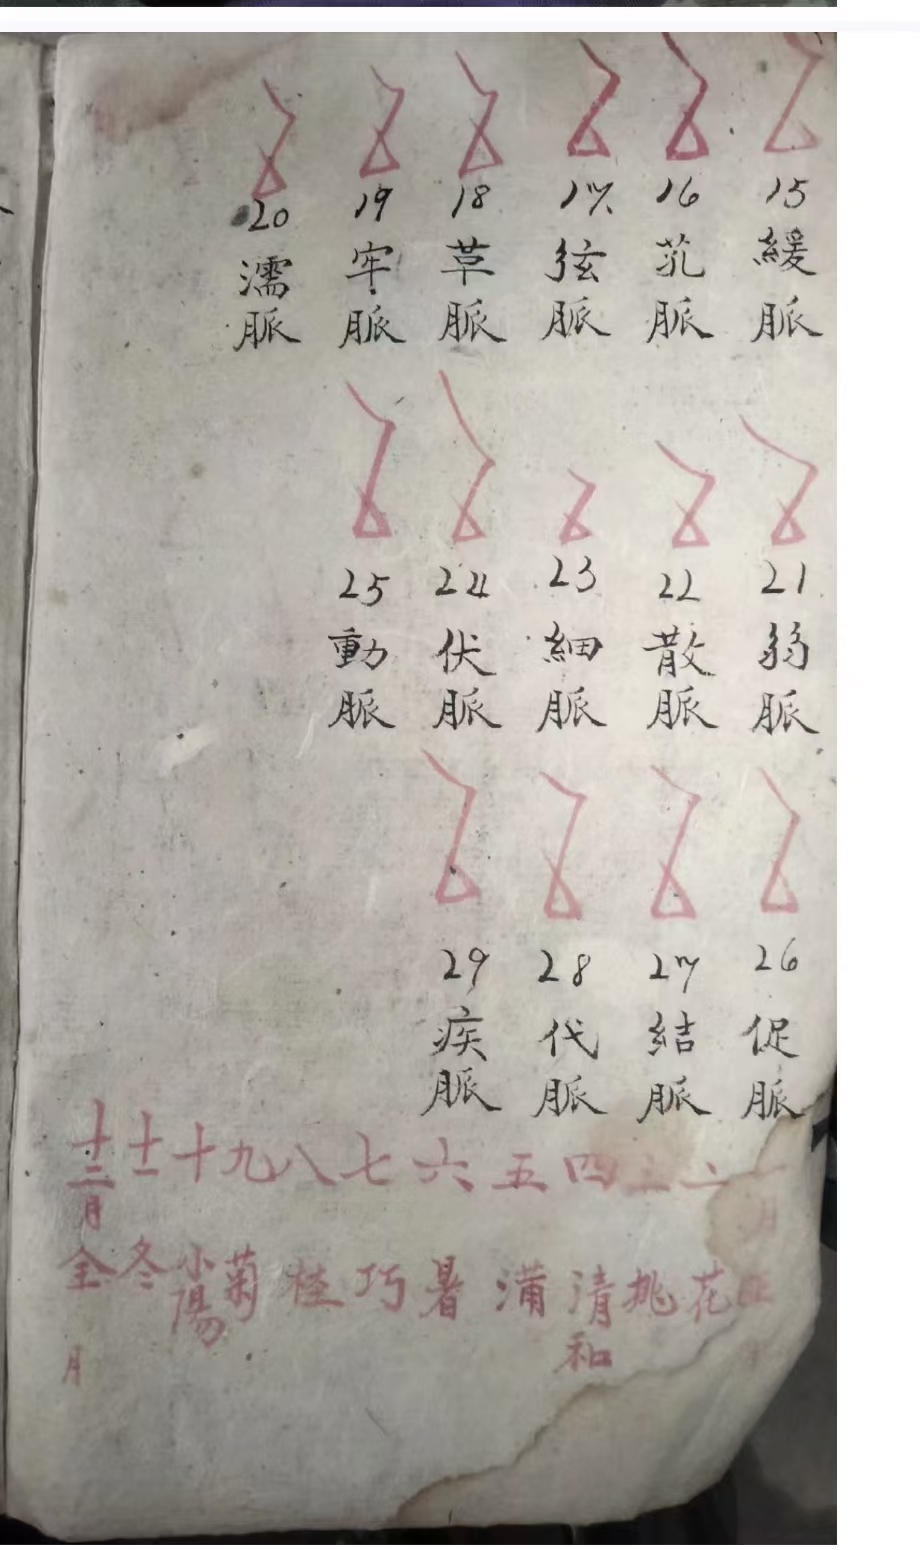 15 緩脈
16 芤脈
17 弦脈
18 草脈
19 牢脈
20 濡脈
21 弱脈
22 散脈
23 細脈
24 伏脈
25 動脈
26 促脈
27 結脈
28 代脈
29 疾脈
一月 正月
二 花
三 桃
四 清和
五 蒲
六 暑
七 巧
八 桂
九 菊
十 小陽
十一 冬
十二月 全月